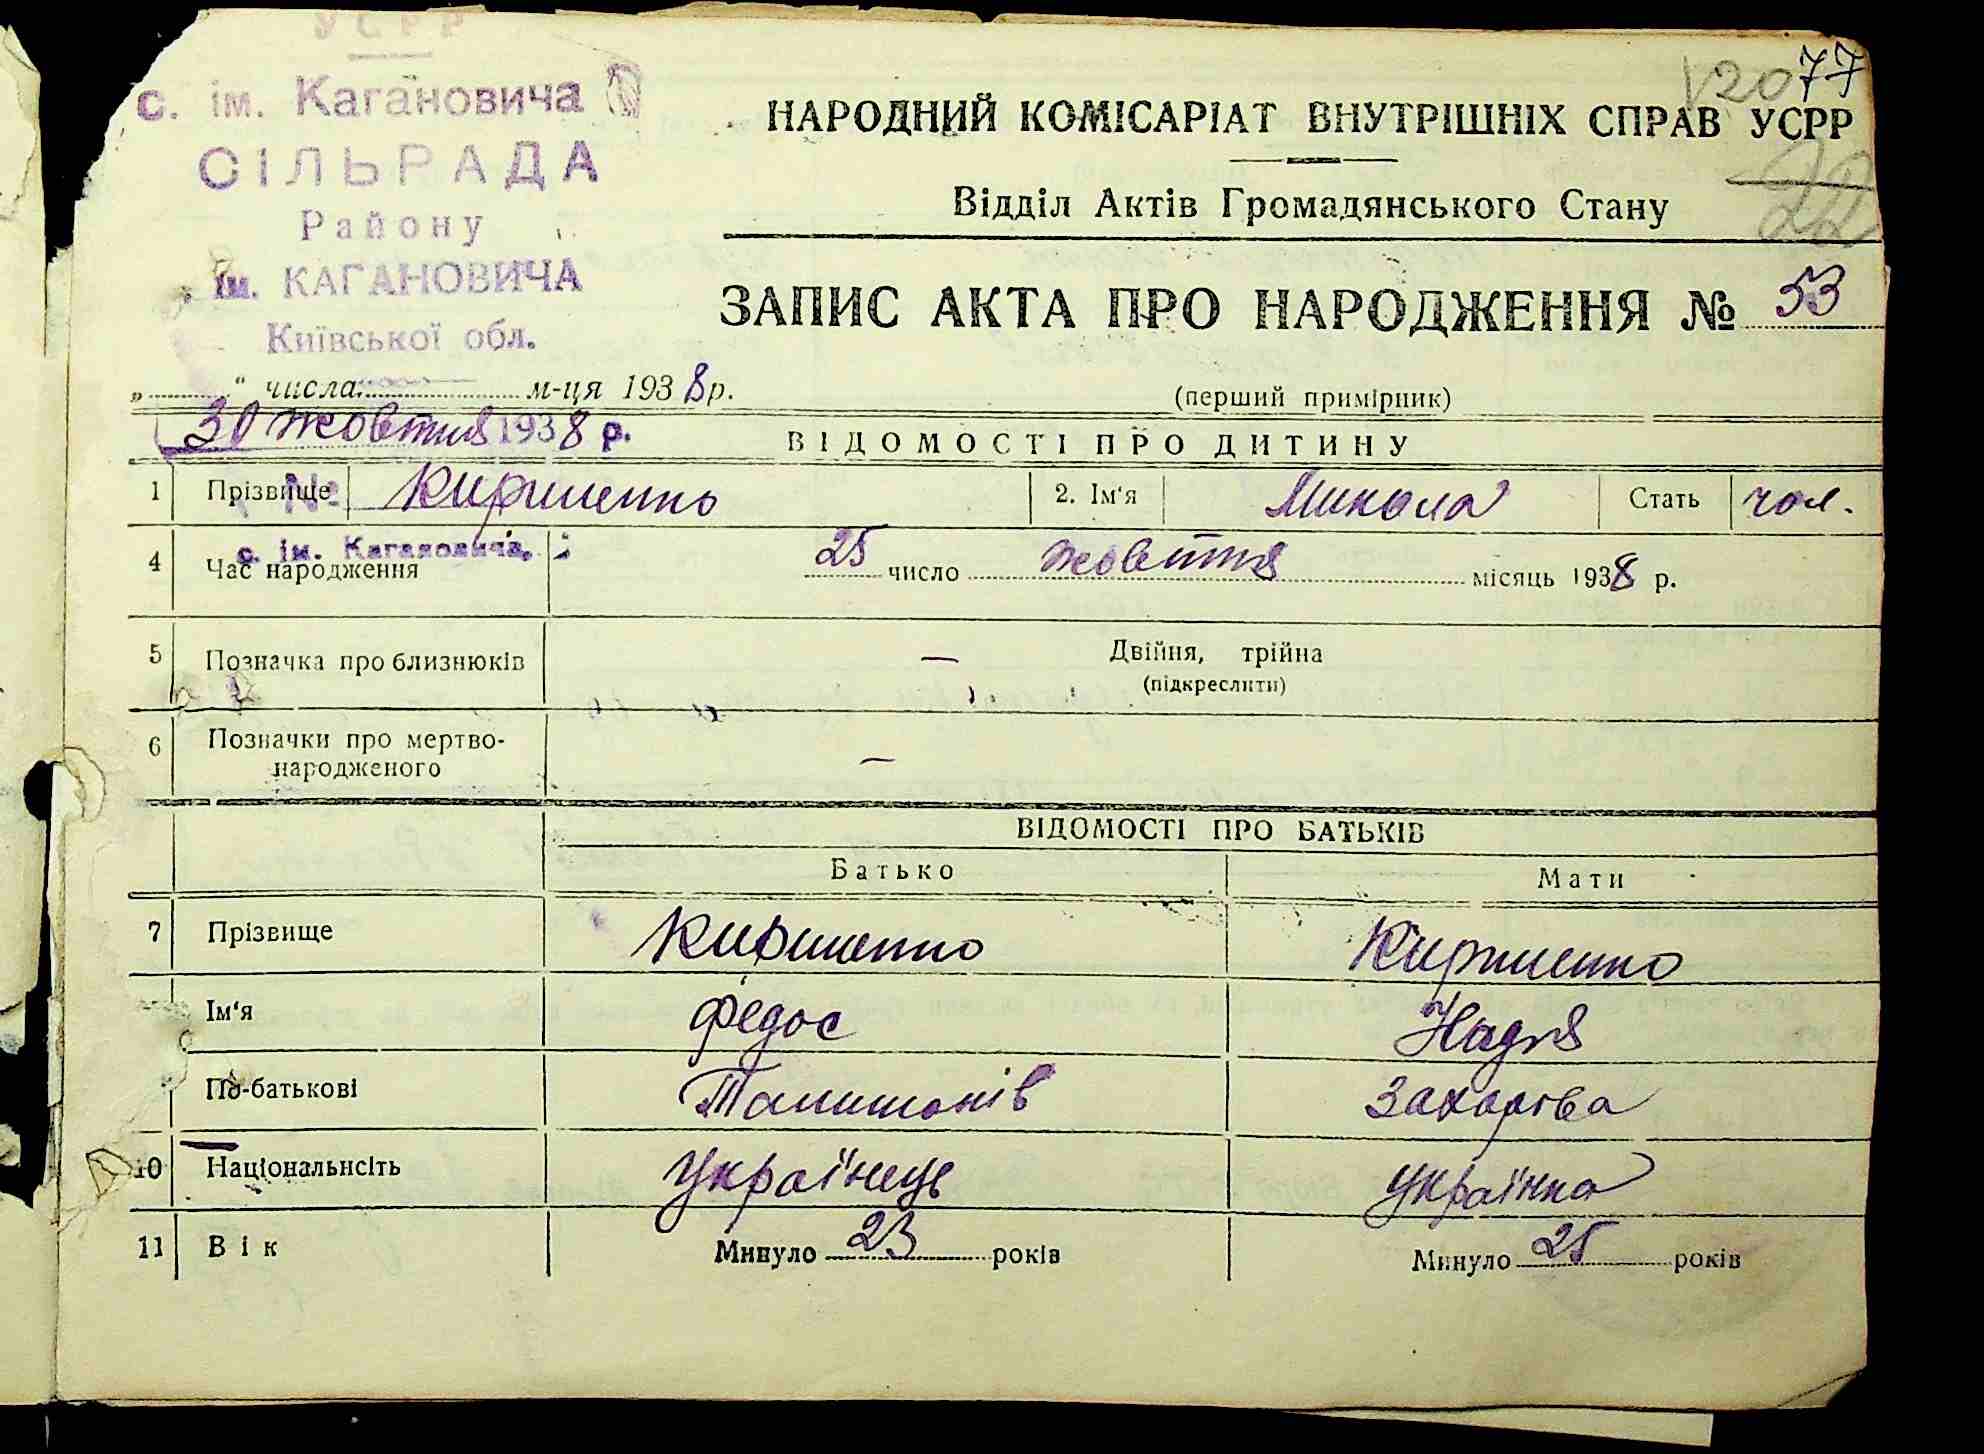 УСРР
с. ім. Кагановича
СІЛЬРАДА
Району
ім. КАГАНОВИЧА
Київської обл.
120 77
22
НАРОДНИЙ КОМІСАРІАТ ВНУТРІШНІХ СПРАВ УСРР
Відділ Актів Громадянського Стану
ЗАПИС АКТА ПРО НАРОДЖЕННЯ № 53
„ “ числа м-ця 1938 р.
(перший примірник)
30 жовтня 1938 р.
ВІДОМОСТІ ПРО ДИТИНУ
1 Прізвище № Киришенко 2. Ім'я Микола Стать чол.
с. ім. Кагановича,
4 Час народження 25 число жовтня місяць 1938 р.
5 Позначка про близнюків — Двійня, трійна
(підкреслити)
6 Позначки про мертво-
народженого —
ВІДОМОСТІ ПРО БАТЬКІВ
Батько Мати
7 Прізвище Киришенко Киришенко
Ім'я Федос Надія
По-батькові Захарова
10 Національнсіть Українець Українка
11 Вік Минуло 23 років Минуло 25 років